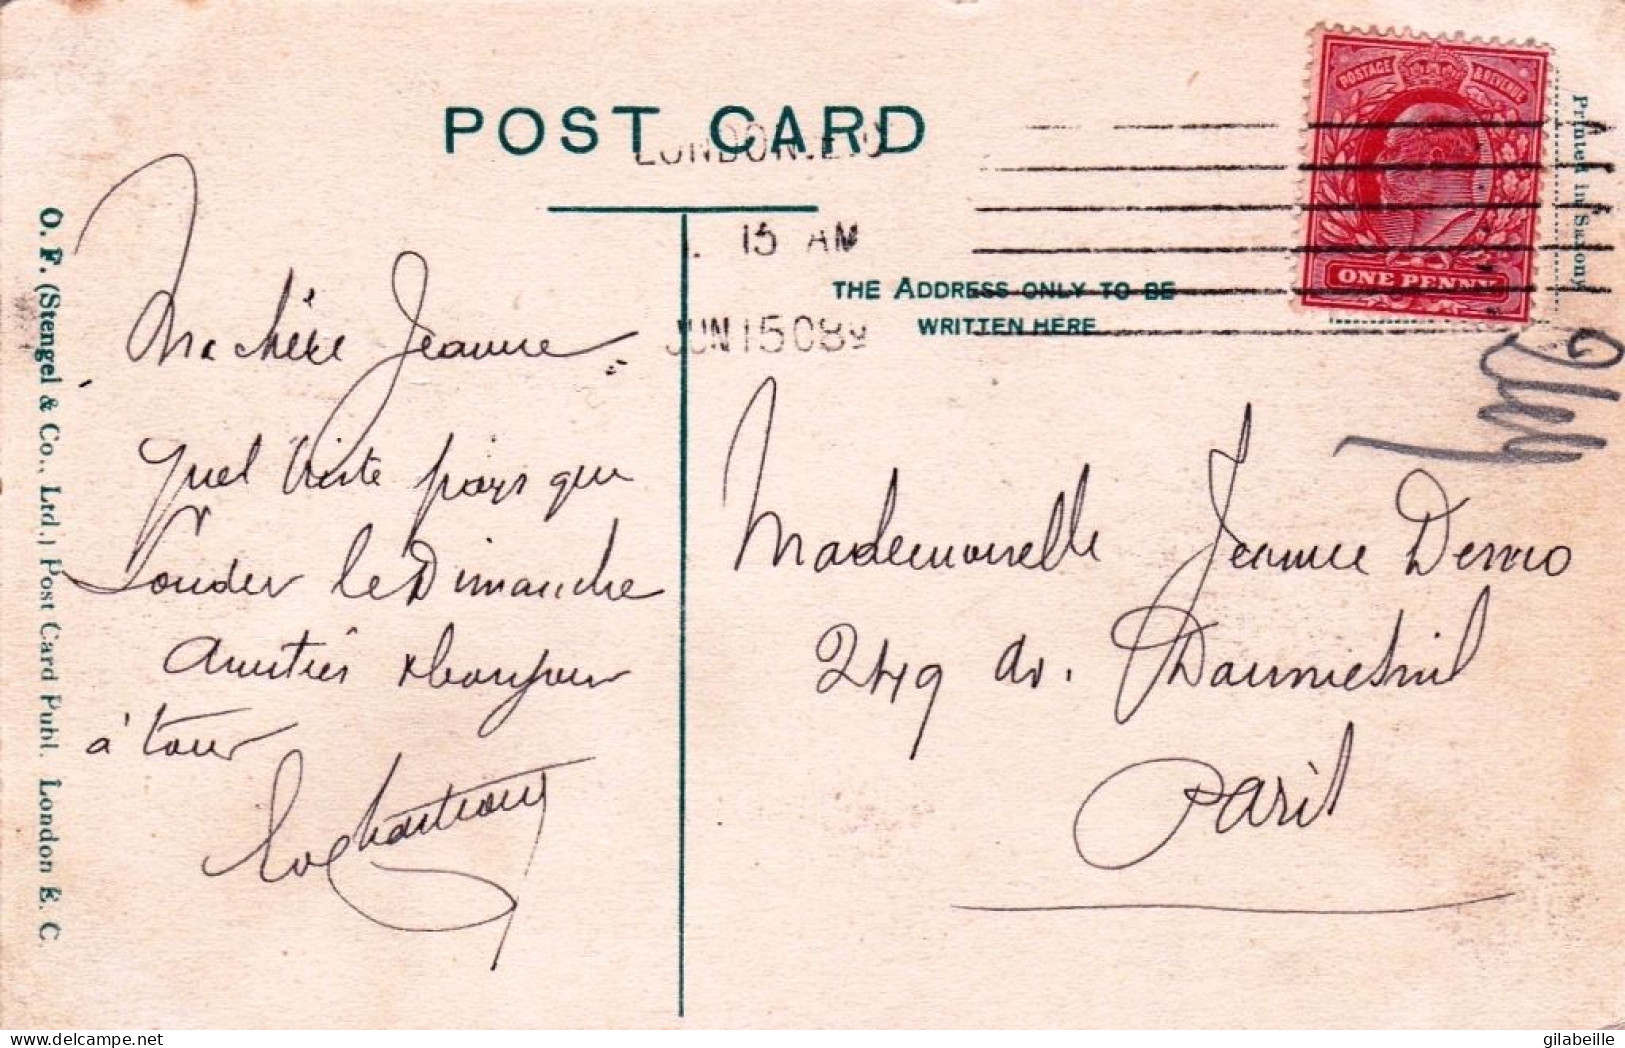 POST CARD
LONDON. E.C
15 AM
JUN 15 08
THE ADDRESS ONLY TO BE
WRITTEN HERE
POSTAGE & REVENUE
ONE PENNY
Printed in Saxony
O. F. (Stengel & Co., Ltd.) Post Card Publ. London E. C.
Ma chère Jeanne
Quel triste pays que
Londer le Dimanche
Amitiés & bonjour
à tous
Mademoiselle Jeanne
249 Av. Daumesnil
Paris
gilabeille